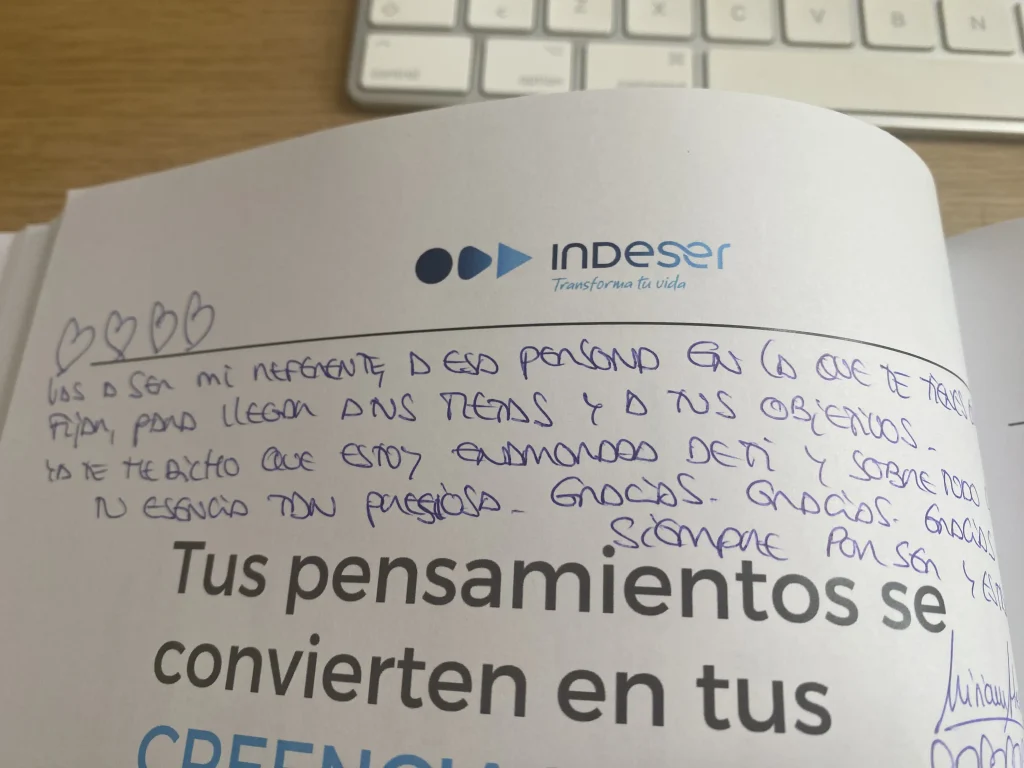 INDESER
Transforma tu vida
VAS A SER MI REFERENTE, A ESA PERSONA EN LA QUE TE TIENES
FIJAR, PARA LLEGAR A TUS METAS Y A TUS OBJETIVOS.
YA TE HE DICHO QUE ESTOY ENAMORADA DE TI Y SOBRE TODO
TU ESENCIA TAN PRESIOSA. GRACIAS. GRACIAS. GRACIAS
SIEMPRE POR SER Y
Tus pensamientos se
convierten en tus
Miriam